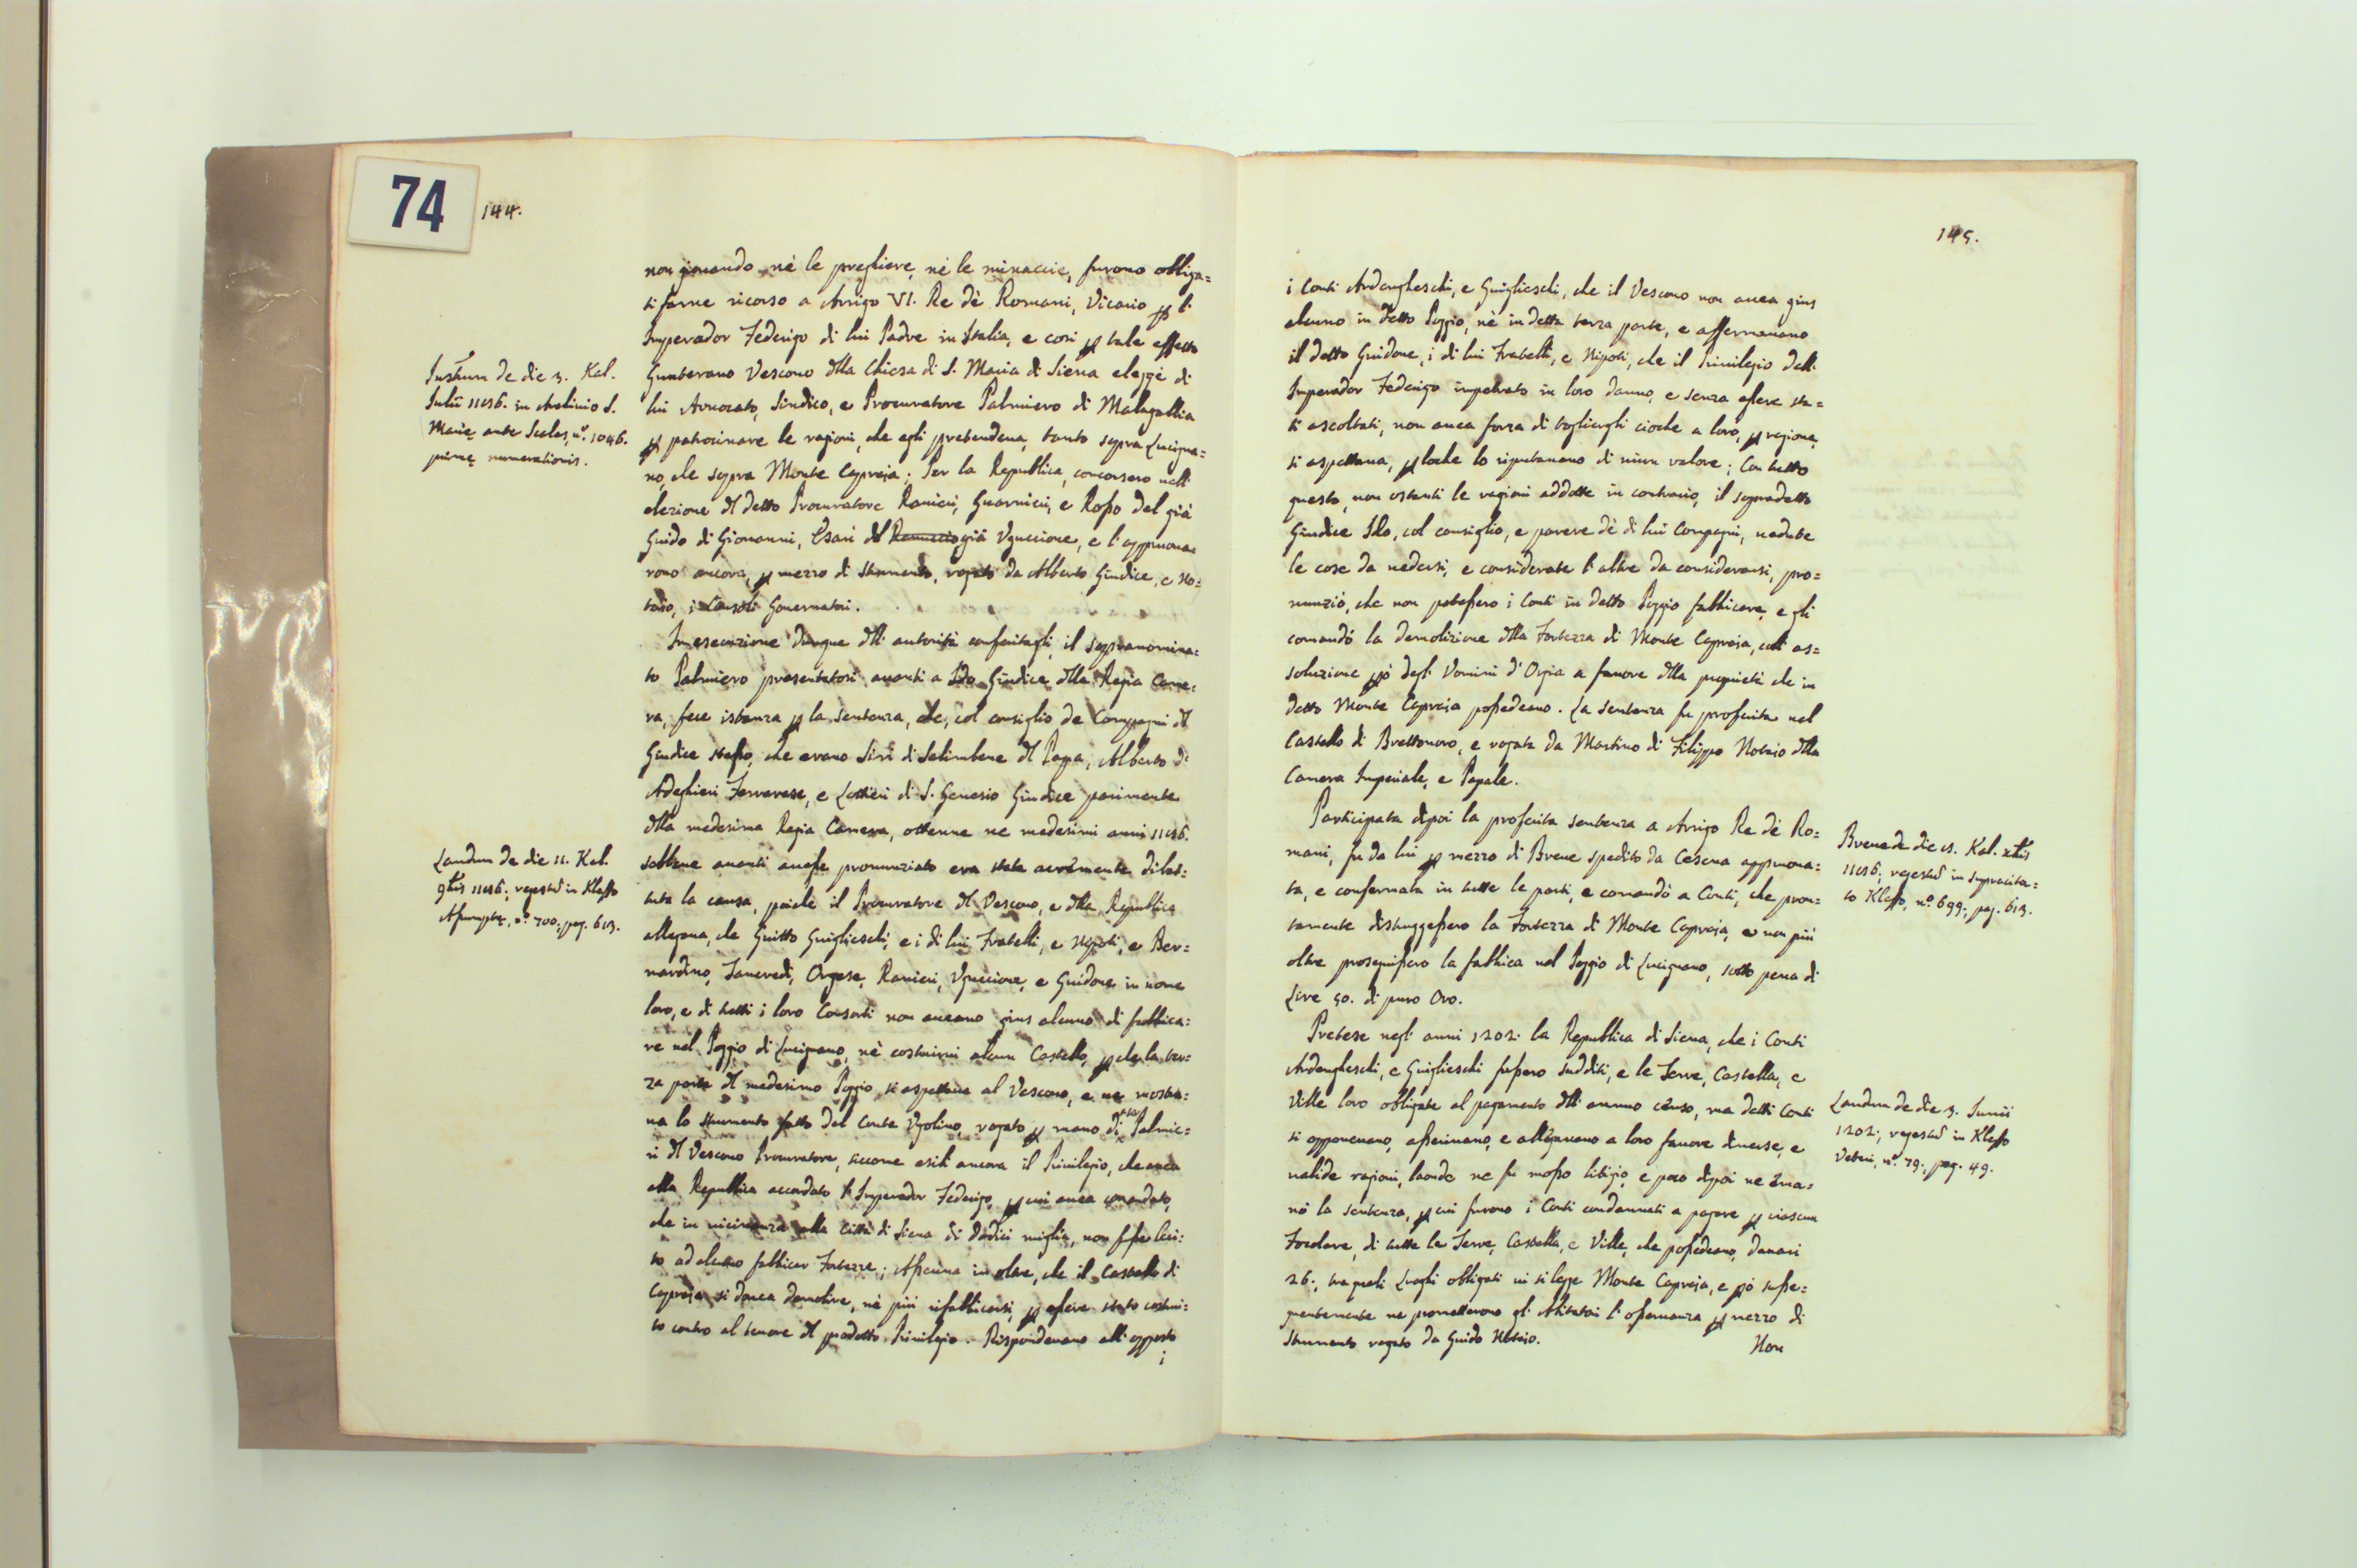 74
144.
non giouando nè le preghiere, nè le minaccie, furono obliga=
ti farne ricorso a Arrigo VI. Re dè Romani, Vicario p l'
Imperador Federigo di lui Padre in Italia, e così p tale effetto
Gunterano Vescouo dlla Chiesa di S. Maria di Siena elegge di
lui Auuocato, Sindico, e Procuratore Palmiero di Malagallia
p patrocinare le ragioni, che egli pretendeua, tanto sopra Lucigna=
no, che sopra Monte Capraja; Per la Republica, concorsero nell'
elezione dl detto Procuratore Ranieri, Guarnieri, e Rosso del già
Guido di Giouanni, Cesari dl già Vguccione, e l'approua=
rono ancora, p mezzo di Strumento, rogato da Alberto Giudice, e No=
taio, i Consoli Gouernatori.
In esecuzione dunque dll' autorità conferitagli, il sopranomina=
to Palmiero presentatosi auanti a Ido Giudice dlla Regia Came=
ra, fece istanza p la sentenza, che, col consiglio de Compagni dl
Giudice stesso, che erano Siri di Salimbene dl Papa, Alberto di
Adeghieri Ferrarese, e Lottieri di S. Genesio Giudice parimente
dlla medesima Regia Camera, ottenne ne medesimi anni 1186.
sebbene auanti auesse pronunziato era stata acremente dibat=
tuta la causa, poichè il Procuratore dl Vescouo, e dlla Republica
allegaua, che Guitto Guiglieschi, e i di lui Fratelli, e Nipoti, e Ber=
nardino, Tancredi, Orgese, Ranieri, Vguccione, e Guidone in nome
loro, e di tutti i loro Consorti non aueano gius alcuno di fabbica=
re nel Poggio di Lucignano, nè costruirui alcun Castello, p che la ter=
za parte dl medesimo Poggio, si aspettaua al Vescouo, e ne mostra=
ua lo strumento fatto dal Conte Vgolino, rogato p mano di Palmie=
ri dl Vescouo Procuratore, siccome esibì ancora il Priuilegio, che auea
alla Republica accordato l'Imperador Federigo, p cui auea comandato,
che in uicinanza alla Città di Siena di dodici miglia, non fosse leci=
to ad alcuno fabbicar Fortezze; Asseriua in oltre, che il Castello di
Capraja si douea demolire, nè più rifabbicarsi, p essere stato costrui=
to contro al tenore dl predetto Priuilegio. Rispondeuano all' opposto
i
Instrum de die 3. Kal.
Julii 1186. in Archiuio S.
Marię ante Scalas, nº. 1046.
primę numerationis.
Laudum de die 11. Kal.
9bris 1186; regestũ in Kleffo
Assumptę, nº. 700; pag. 613.
145.
i Conti Ardengheschi, e Guiglieschi, che il Vescouo non auea gius
alcuno in detto Poggio, nè in detta terza parte, e affermauano
il detto Guidone, i di lui Fratelli, e Nipoti, che il Priuilegio dall'
Imperador Federigo impetrato in loro danno, e senza essere sta=
ti ascoltati, non auea forza di togliergli cioche a loro, p ragione,
si aspettaua, p loche lo riputauano di niun valore; Con tutto
questo, non ostanti le ragioni addotte in contrario, il sopradetto
Giudice Ido, col consiglio, e parere dè di lui Compagni, uedute
le cose da uedersi, e considerate l'altre da considerarsi, pro=
nunziò, che non potessero i Conti in detto Poggio fabbicare, e gli
comandò la demolizione dlla Fortezza di Monte Capraja, coll' as=
soluzione pò degl' Vomini d'Orgia a fauore dlla proprietà che in
detto Monte Capraja possedeano. La sentenza fu proferita nel
Castello di Brettonoro, e rogata da Martino di Filippo Notaio dlla
Camera Imperiale, e Papale.
Participata dipoi la proferita sentenza a Arrigo Re dè Ro=
mani, fu da lui p mezzo di Breue spedito da Cesena approua=
ta, e confermata in tutte le parti, e comandò a Conti, che pron=
tamente distruggessero la Fortezza di Monte Capraja, e non più
oltre proseguissero la fabbica nel Poggio di Lucignano, sotto pena di
Lire 50. di puro Oro.
Pretese negl' anni 1202. la Republica di Siena, che i Conti
Ardengheschi, e Guiglieschi fussero Sudditi, e le Terre, Castella, e
Ville loro obligate al pagamento dll' annuo censo, ma detti Conti
si opponeuano, asseriuano, e allegauano a loro fauore diuerse, e
ualide ragioni, laonde ne fu mosso litigio, e poco dipoi ne ema=
nò la sentenza, p cui furono i Conti condannati a pagare p ciascun
Focolare, di tutte le Terre, Castella, e Ville, che possedeano, danari
26., tra quali Luoghi obligati ui si legge Monte Capraja, e pò susse=
guentemente ne prometterono gl' Abitatori l'osseruanza p mezzo di
Strumento rogato da Guido Notaio.
Non
Breue de die 15. Kal. xbris
1186; regestũ in supracita=
to Kleffo, nº. 699; pag. 613.
Laudum de die 3. Junii
1202; regestũ in Kleffo
Veteri, nº. 79; pag. 49.